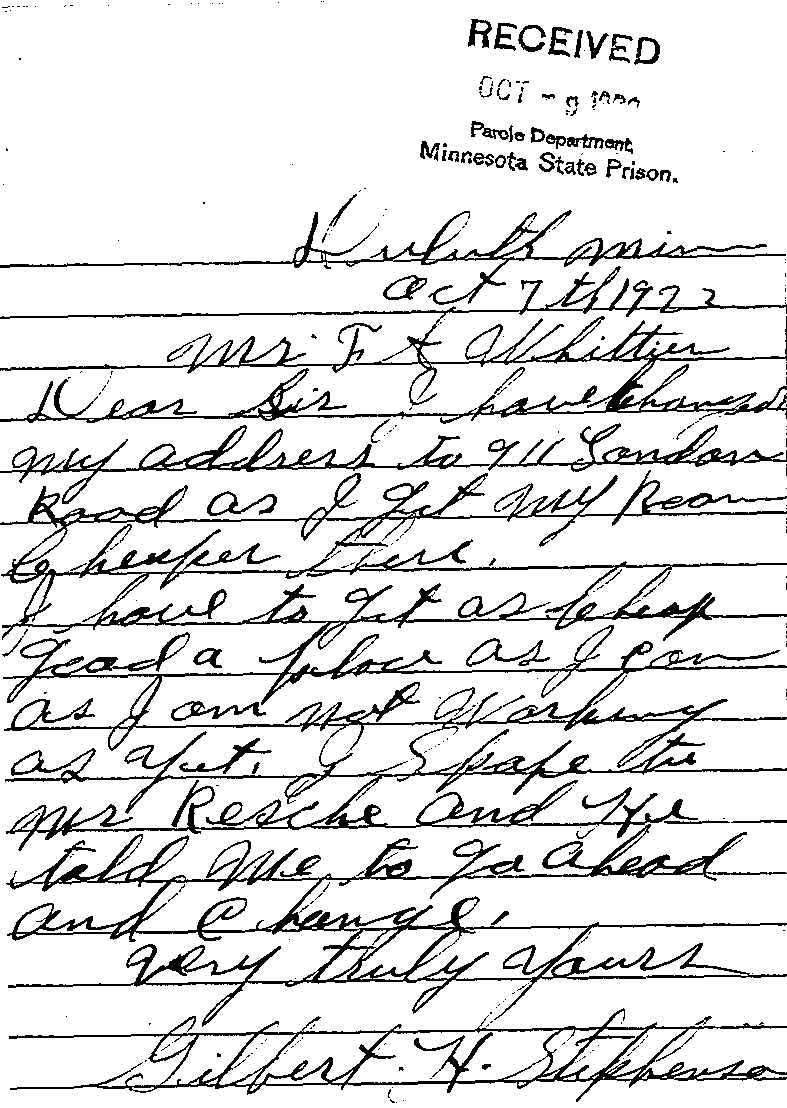 RECEIVED
OCT - 9
Parole Department,
Minnesota State Prison.
Duluth Minn
Oct 7th 1922
Mr. F A Whittier
Dear Sir I have Changed
my address to 911 London
Road as I Get My Room
Cheaper there.
I have to get as Cheap
Good a place as I can
as I am not Working
as yet. I Spape to
Mr Resche and He
told Me to Go ahead
and Change.
Very truly yours
Gilbert. H. Stephenson